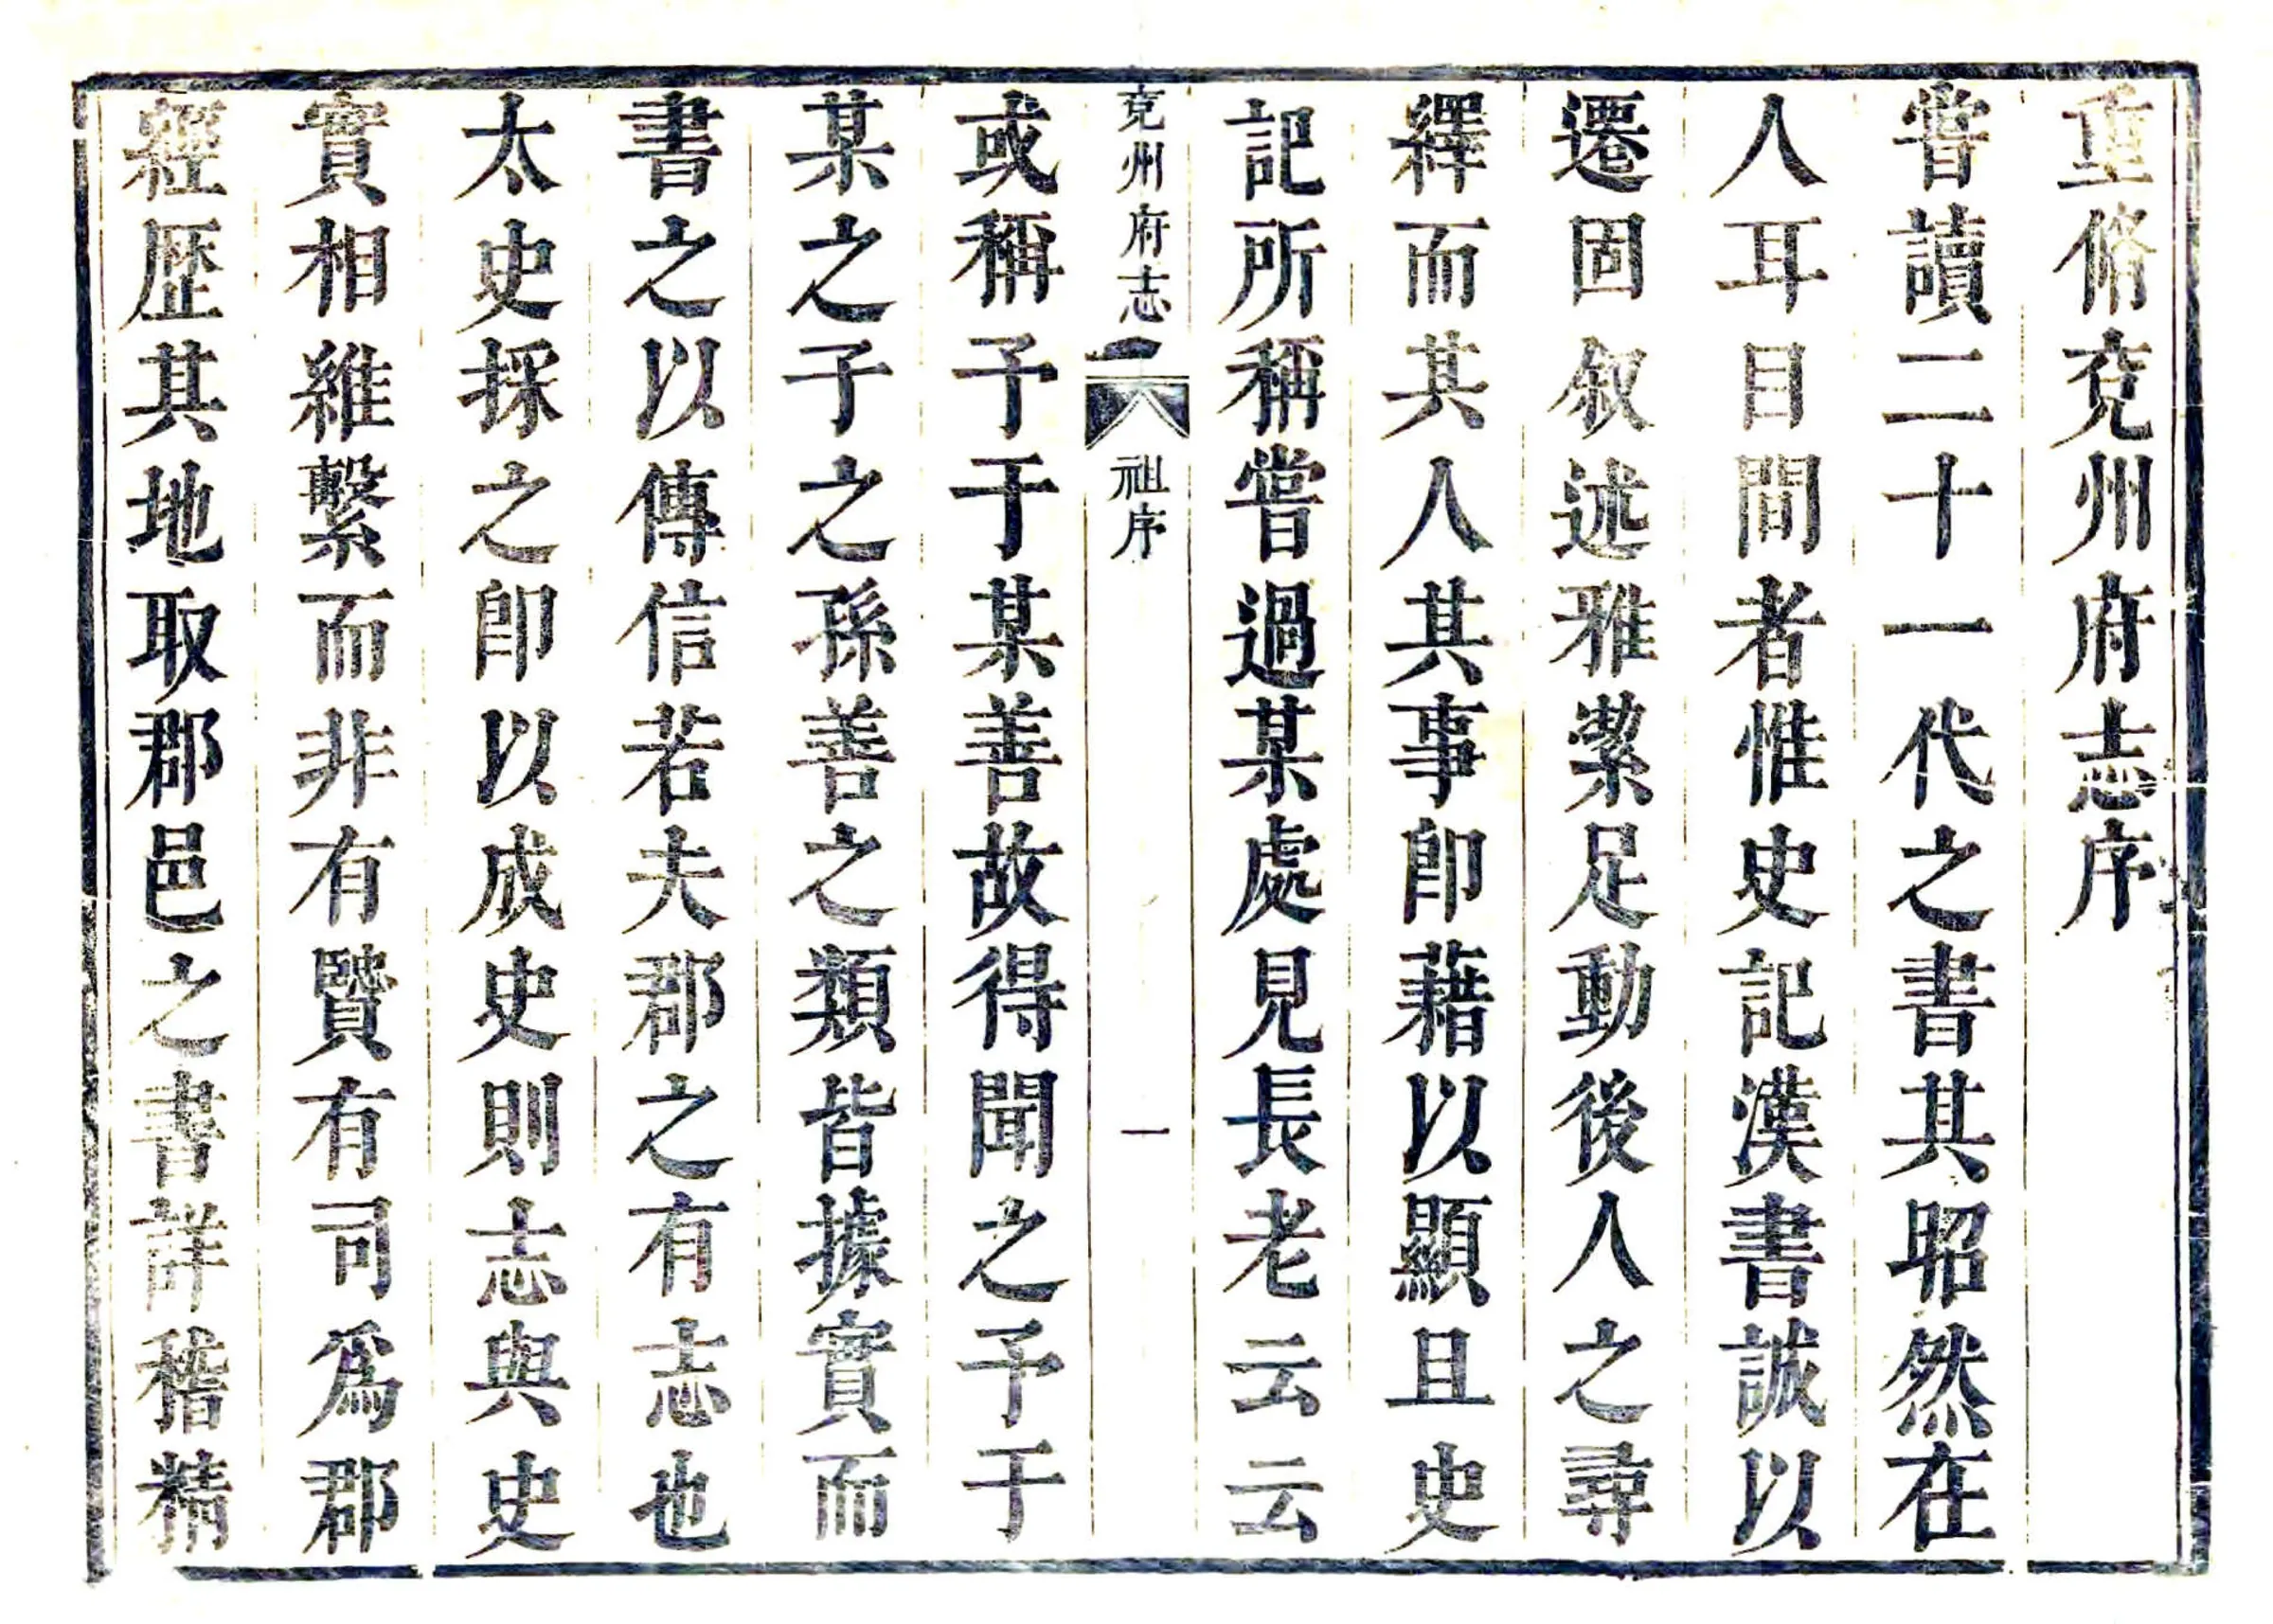 重脩兗州府志序
嘗讀二十一代之書其昭然在
人耳目間者惟史記漢書誠以
遷固叙述雅縈足動後人之尋
繹而其人其事卽藉以顯且史
記所稱嘗過某處見長老云云
兗州府志
祖序
一
或稱予于某善故得聞之予于
某之子之孫善之類皆據實而
書之以傳信若夫郡之有志也
太史採之卽以成史則志與史
實相維繫而非有贒有司爲郡
經歷其地取郡邑之書詳稽精